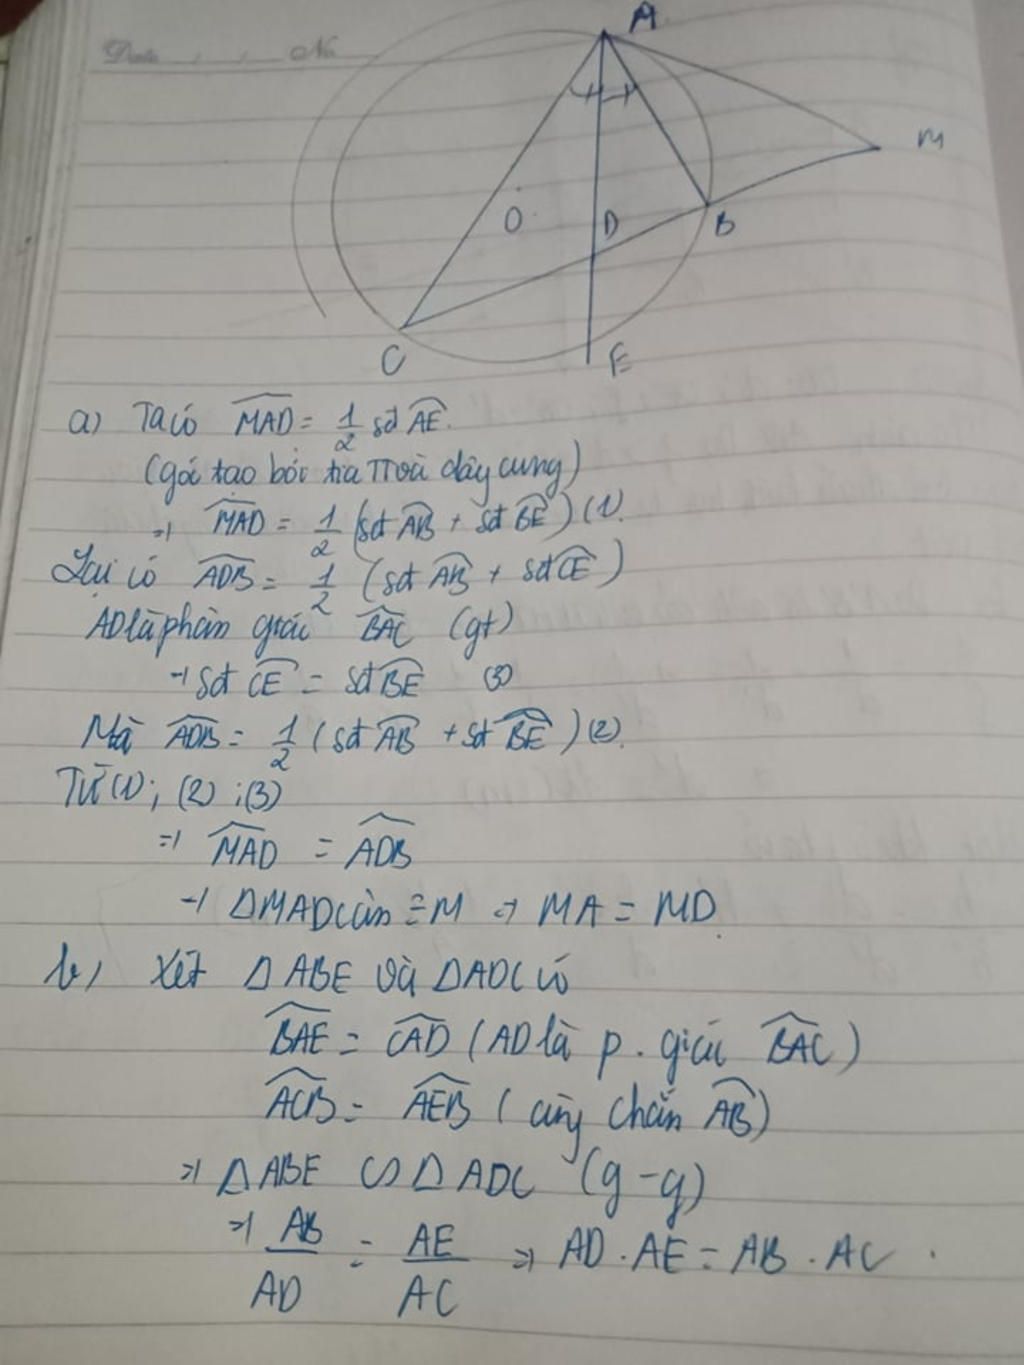 Date . . . No
A
M
O
D
B
C
E
a) Ta có $\widehat{MAD}$ = $\frac{1}{2}$ sđ $\widehat{AE}$.
(góc tạo bởi tia TT và dây cung)
=> $\widehat{MAD}$ = $\frac{1}{2}$ (sđ $\widehat{AB}$ + sđ $\widehat{BE}$) (1)
Lại có $\widehat{ADB}$ = $\frac{1}{2}$ (sđ $\widehat{AB}$ + sđ $\widehat{CE}$)
AD là phân giác $\widehat{BAC}$ (gt)
=> sđ $\widehat{CE}$ = sđ $\widehat{BE}$ (3)
Mà $\widehat{ADB}$ = $\frac{1}{2}$ (sđ $\widehat{AB}$ + sđ $\widehat{BE}$) (2).
Từ (1); (2); (3)
=> $\widehat{MAD}$ = $\widehat{ADB}$
=> ΔMAD cân M => MA = MD.
b) Xét Δ ABE và Δ ADC có
$\widehat{BAE}$ = $\widehat{CAD}$ (AD là p. giác $\widehat{BAC}$)
$\widehat{ACB}$ = $\widehat{AEB}$ (cùng chắn $\widehat{AB}$)
=> Δ ABE ∽ Δ ADC (g-g)
=> $\frac{AB}{AD}$ = $\frac{AE}{AC}$ => AD . AE = AB . AC .